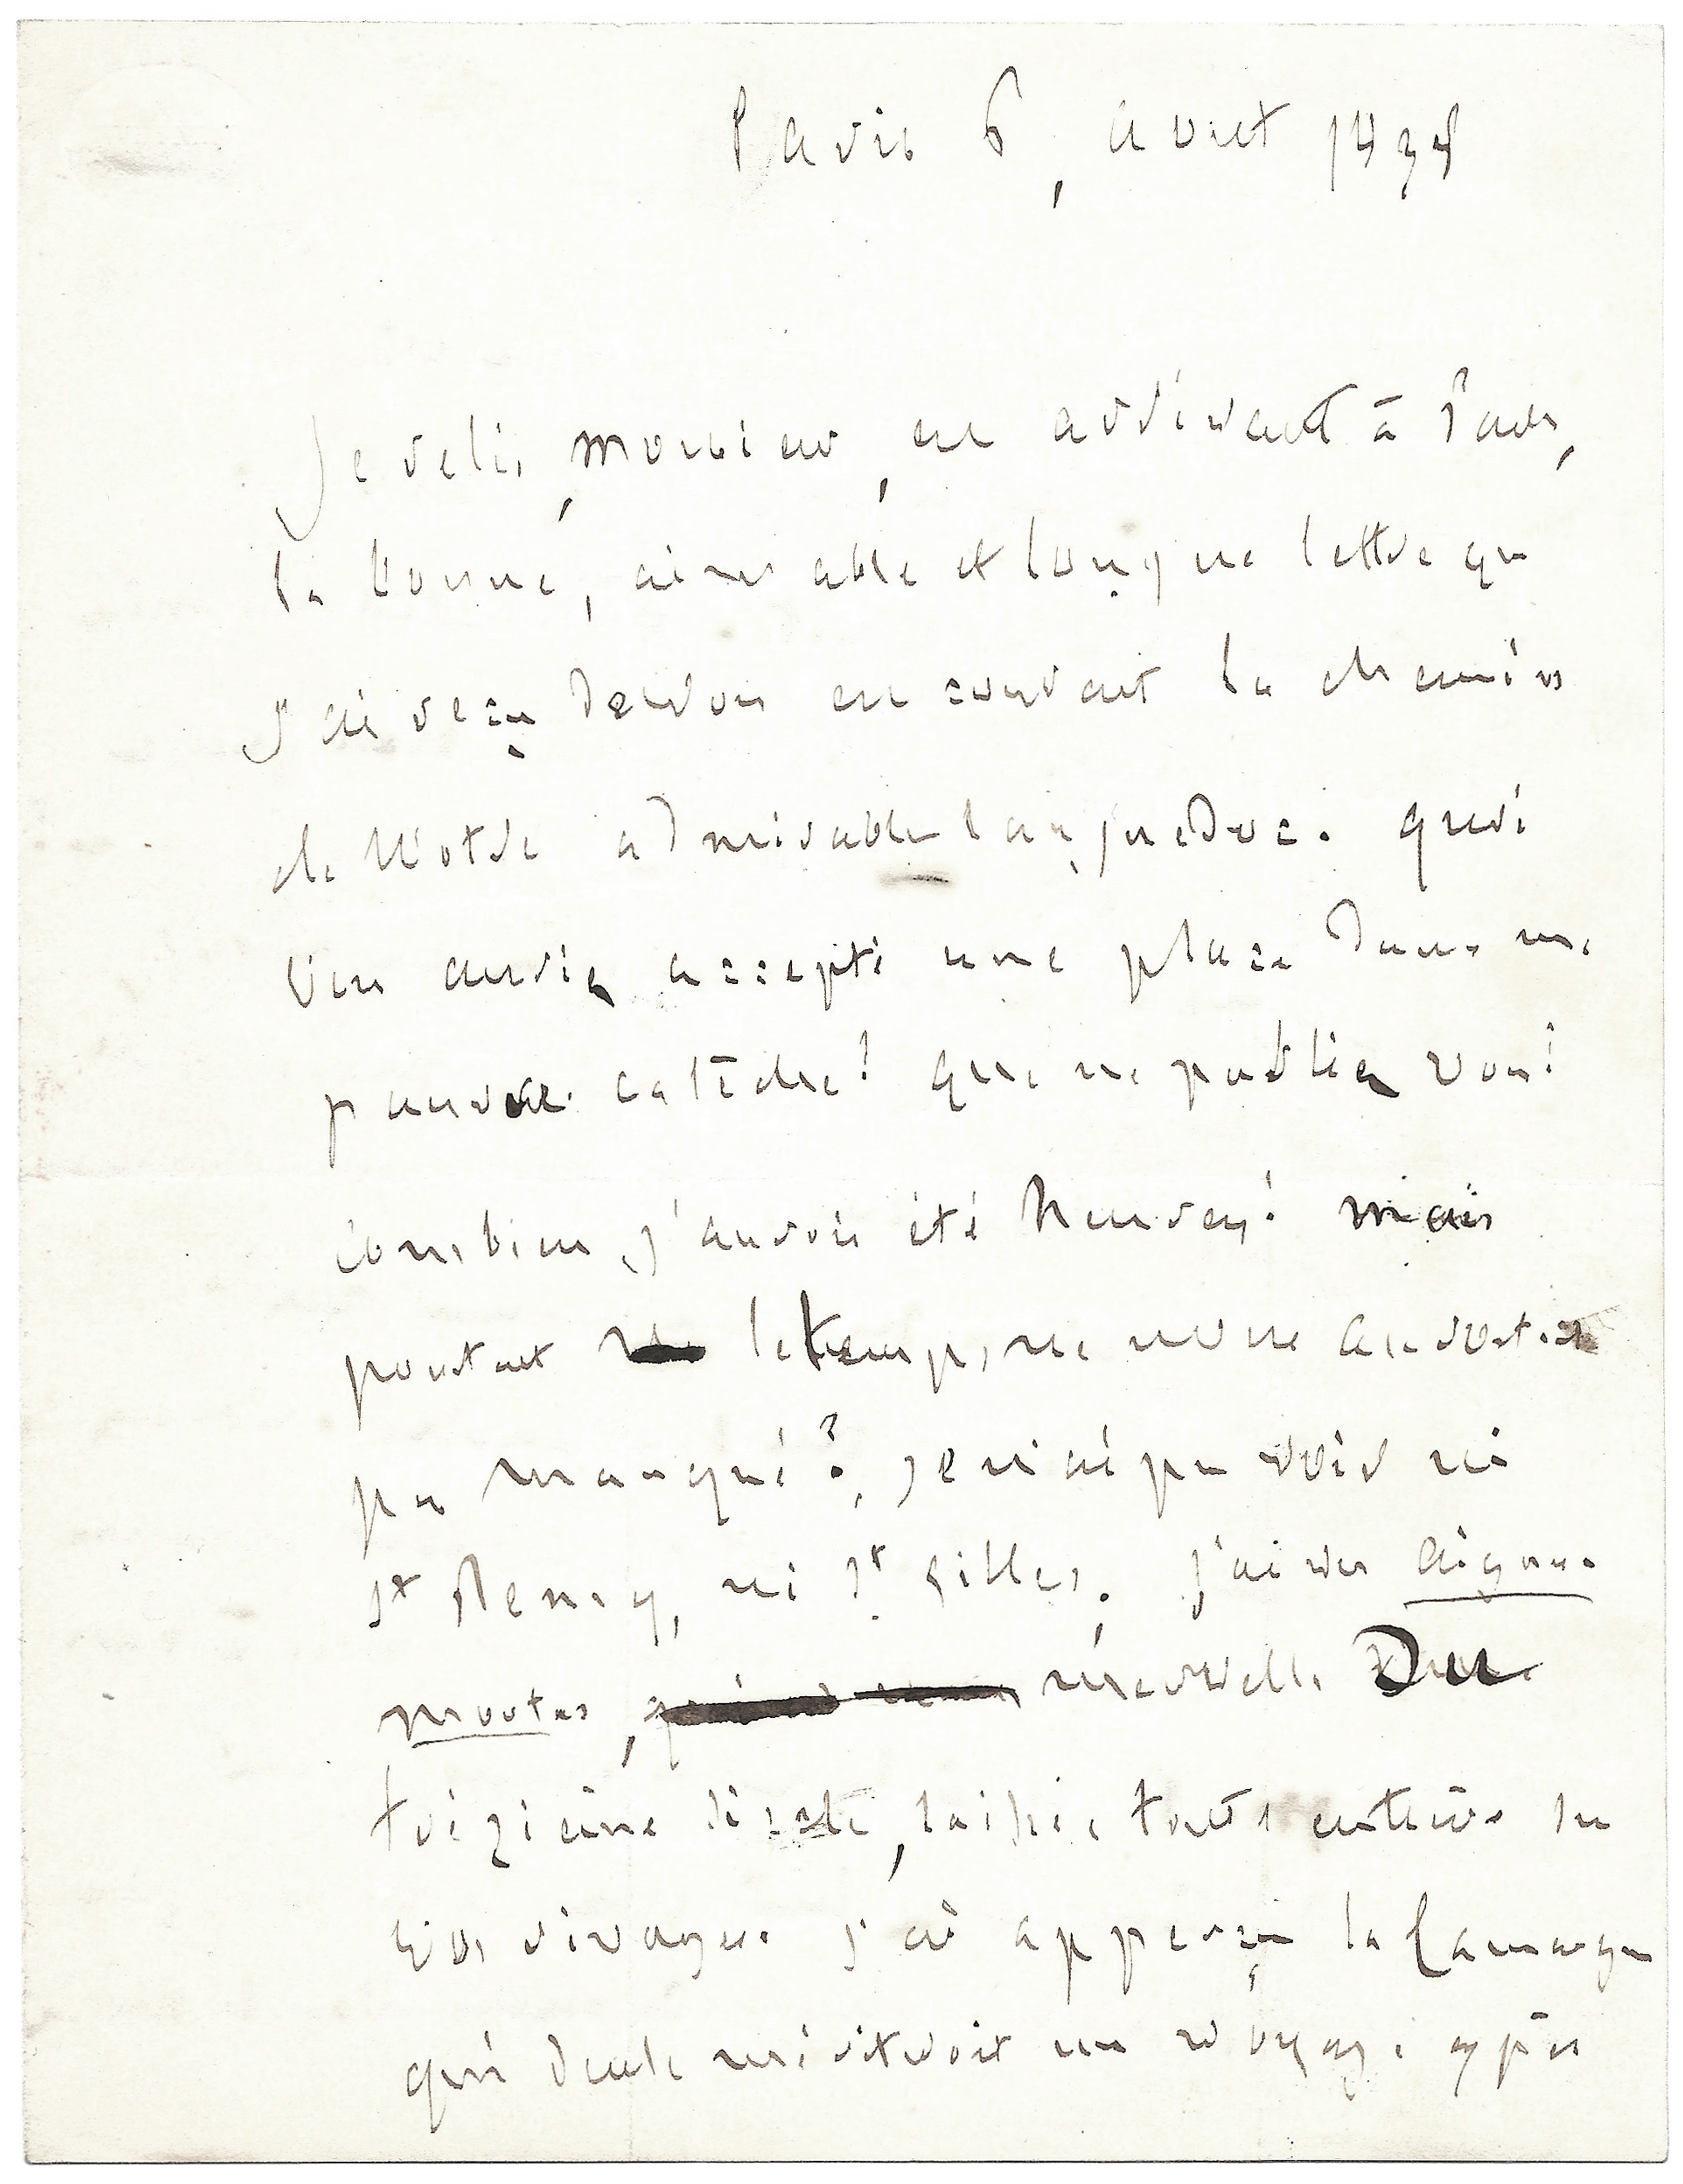 Paris 6, aout 1838
Je relis, monsieur, en arrivant à Paris,
la bonne, aimable et longue lettre que
j'ai reçu de vous en courant la chemins
de Votre admirable languedoc. que si
Vous aurie accepté une place dans ma
pauvre calèche! que ne parliez vous!
combien j'aurois été heureux! mais
pourtant le temps ne nous auroit-il
pas manqué? je n'ai pu voir ni
St Remy, ni St Gilles. J'ai vu aigues
mortes, merveille Du
treizième siecle, laissée toute entière sur
Vos rivages. j'ai apperçu la Camargue
qui seule meriteroit un voyage exprès